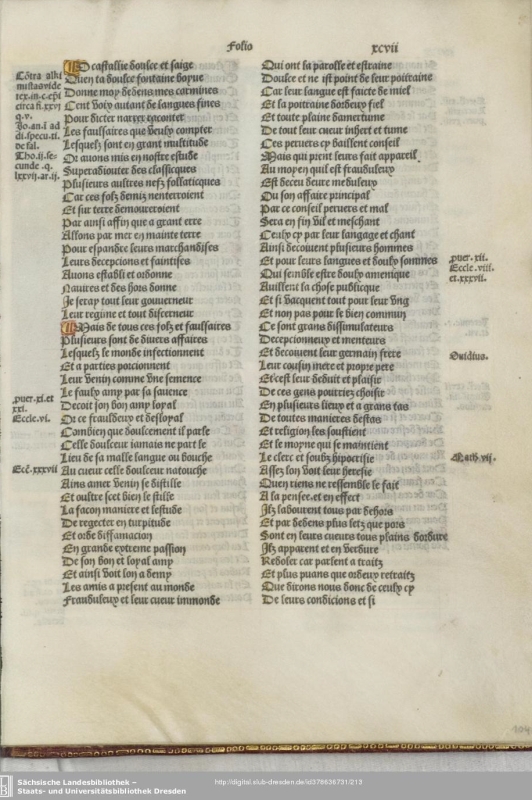 Folio xcvii
Cõtra alki
mistas vide
rex.in.c.epi
circa fi.xxvi
q.v.
cunde .q.
lxxvij.ar.ij.
prouer.xi.et
xxi.
Eccle.vi.
Eccl. xxxvii
O castallie doulce et saige
Quen ta doulce fontaine boyue
Donne moy dedens mes carmines
Cent voix autant de langues fines
Pour dicter narrer raconter
Les faulsaires que veulx compter
Lesquelz sont en grant multitude
Or auons mis en nostre estude
Superadiouter des classicques
Plusieurs aultres nefz follaticques
Car ces folz demiz nenterroient
Et sur terre demoureroient
Par ainsi affin que a grant erre
Allons par mer en mainte terre
Pour espandre leurs marchandises
Leurs deceptions et faintises
Auons establi et ordonne
Nauires et des hors donne
Je seray tout leur gouuerneur
Leur regime et tout discerneur
Mais de tous ces folz et faulsaires
Plusieurs sont de diuers affaires
Lesquelz le monde infectionnent
Et a parties porcionnent
Leur venin comme vne semence
Le faulx amy par sa sauence
Decoit son bon amy loyal
Or ce fraulduleux et desloyal
Combien que doulcement il parle
Celle doulceur iamais ne part le
Lieu de sa malle langue ou bouche
Au cueur celle doulceur natouche
Ains amer venin se distille
Et oultre scet bien le stille
La facon maniere et lestude
De regecter en turpitude
Et orde diffamacion
En grande extreme passion
De son bon et loyal amy
Et ainsi voit lon a demy
Les amis a present au monde
Frauduleux et leur cueur immonde
Qui ont la parolle et estraine
Doulce et ne ist point de leur poitraine
Car leur langue est faicte de miel
Et la poitrine dordeux fiel
Et toute plaine damertume
De tout leur cueur inhert et tume
Ces peruers cy baillent conseil
Mais qui prent leurs fait appareil
Au moyen quil est frauduleux
Est deceu deure meduleux
Ou son affaire principal
Par ce conseil peruers et mal
Sera en fin vil et meschant
Ceulx cy par leur langage et chant
Ainsi decoiuent plusieurs hommes
Et pour leurs langues et doulx sommes
Qui semble estre doulx amenique
Auillent la chose publicque
Et si vacquent tout pour leur vng
Et non pas pour le bien commun
Ce sont grans dissimulateurs
Decepcionneux et menteurs
Et decoiuent leur germain frere
Leur cousin mere et propre pere
Et cest leur deduit et plaisir
De ces gens pourriez choisir
En plusieurs lieux et a grans tas
De toutes manieres destas
Et religion les soustient
Et le moyne qui se maintient
Le clerc et soubz hipocrisie
Assez lon voit leur heresie
Quen riens ne ressemble le fait
A la pensee.et en effect
Ilz labourent tous par dehors
Et par dedens plus letz que pors
Sont en leurs cueurs tous plains dordure
Ilz apparent et en verdure
Redolet car parlent a traitz
Et plus puans que ordeux retraitz
Que dirons nous donc de ceulx cy
De leurs condicions et si
prouer. xii.
Eccle. viii.
et.xxxvii.
Ouidius.
Math. vij.
104
Sächsische Landesbibliothek –
Staats- und Universitätsbibliothek Dresden
http://digital.slub-dresden.de/id378636731/213